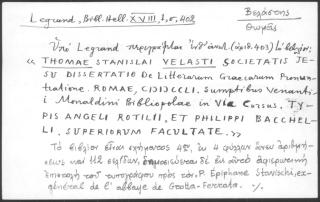 Legrand, Bibl. Hell. XVIII, 1, σ. 402
Βελάστης
Θωμᾶς
Ὑπὸ Legrand περιγράφεται (ἀριθ. 403) τὸ βιβλίον:
« THOMAE STANISLAI VELASTI SOCIETATIS JE-
SU DISSERTATIO De Litterarum Graecarum Pronun-
tiatione. ROMAE, CIƆIƆCCLI. Sumptibus Venanti-
i Monaldini Bibliopolae in Via Cursus. TY-
PIS ANGELI ROTILII, ET PHILIPPI BACCHEL-
LI. SUPERIORUM FACULTATE. »
Τὸ βιβλίον εἶναι σχήματος 4ου, ἐκ 4 φύλλων ἄνευ ἀριθμή-
σεως καὶ 112 σελίδων, δημοσιεύεται δὲ εἰς αὐτὸ ἀφιερωτικὴ
ἐπιστολὴ τοῦ συγγραφέως πρὸς τὸν P. Epiphane Stanischi, ex-
général de l'abbaye de Grotta-Ferrata. ·/.